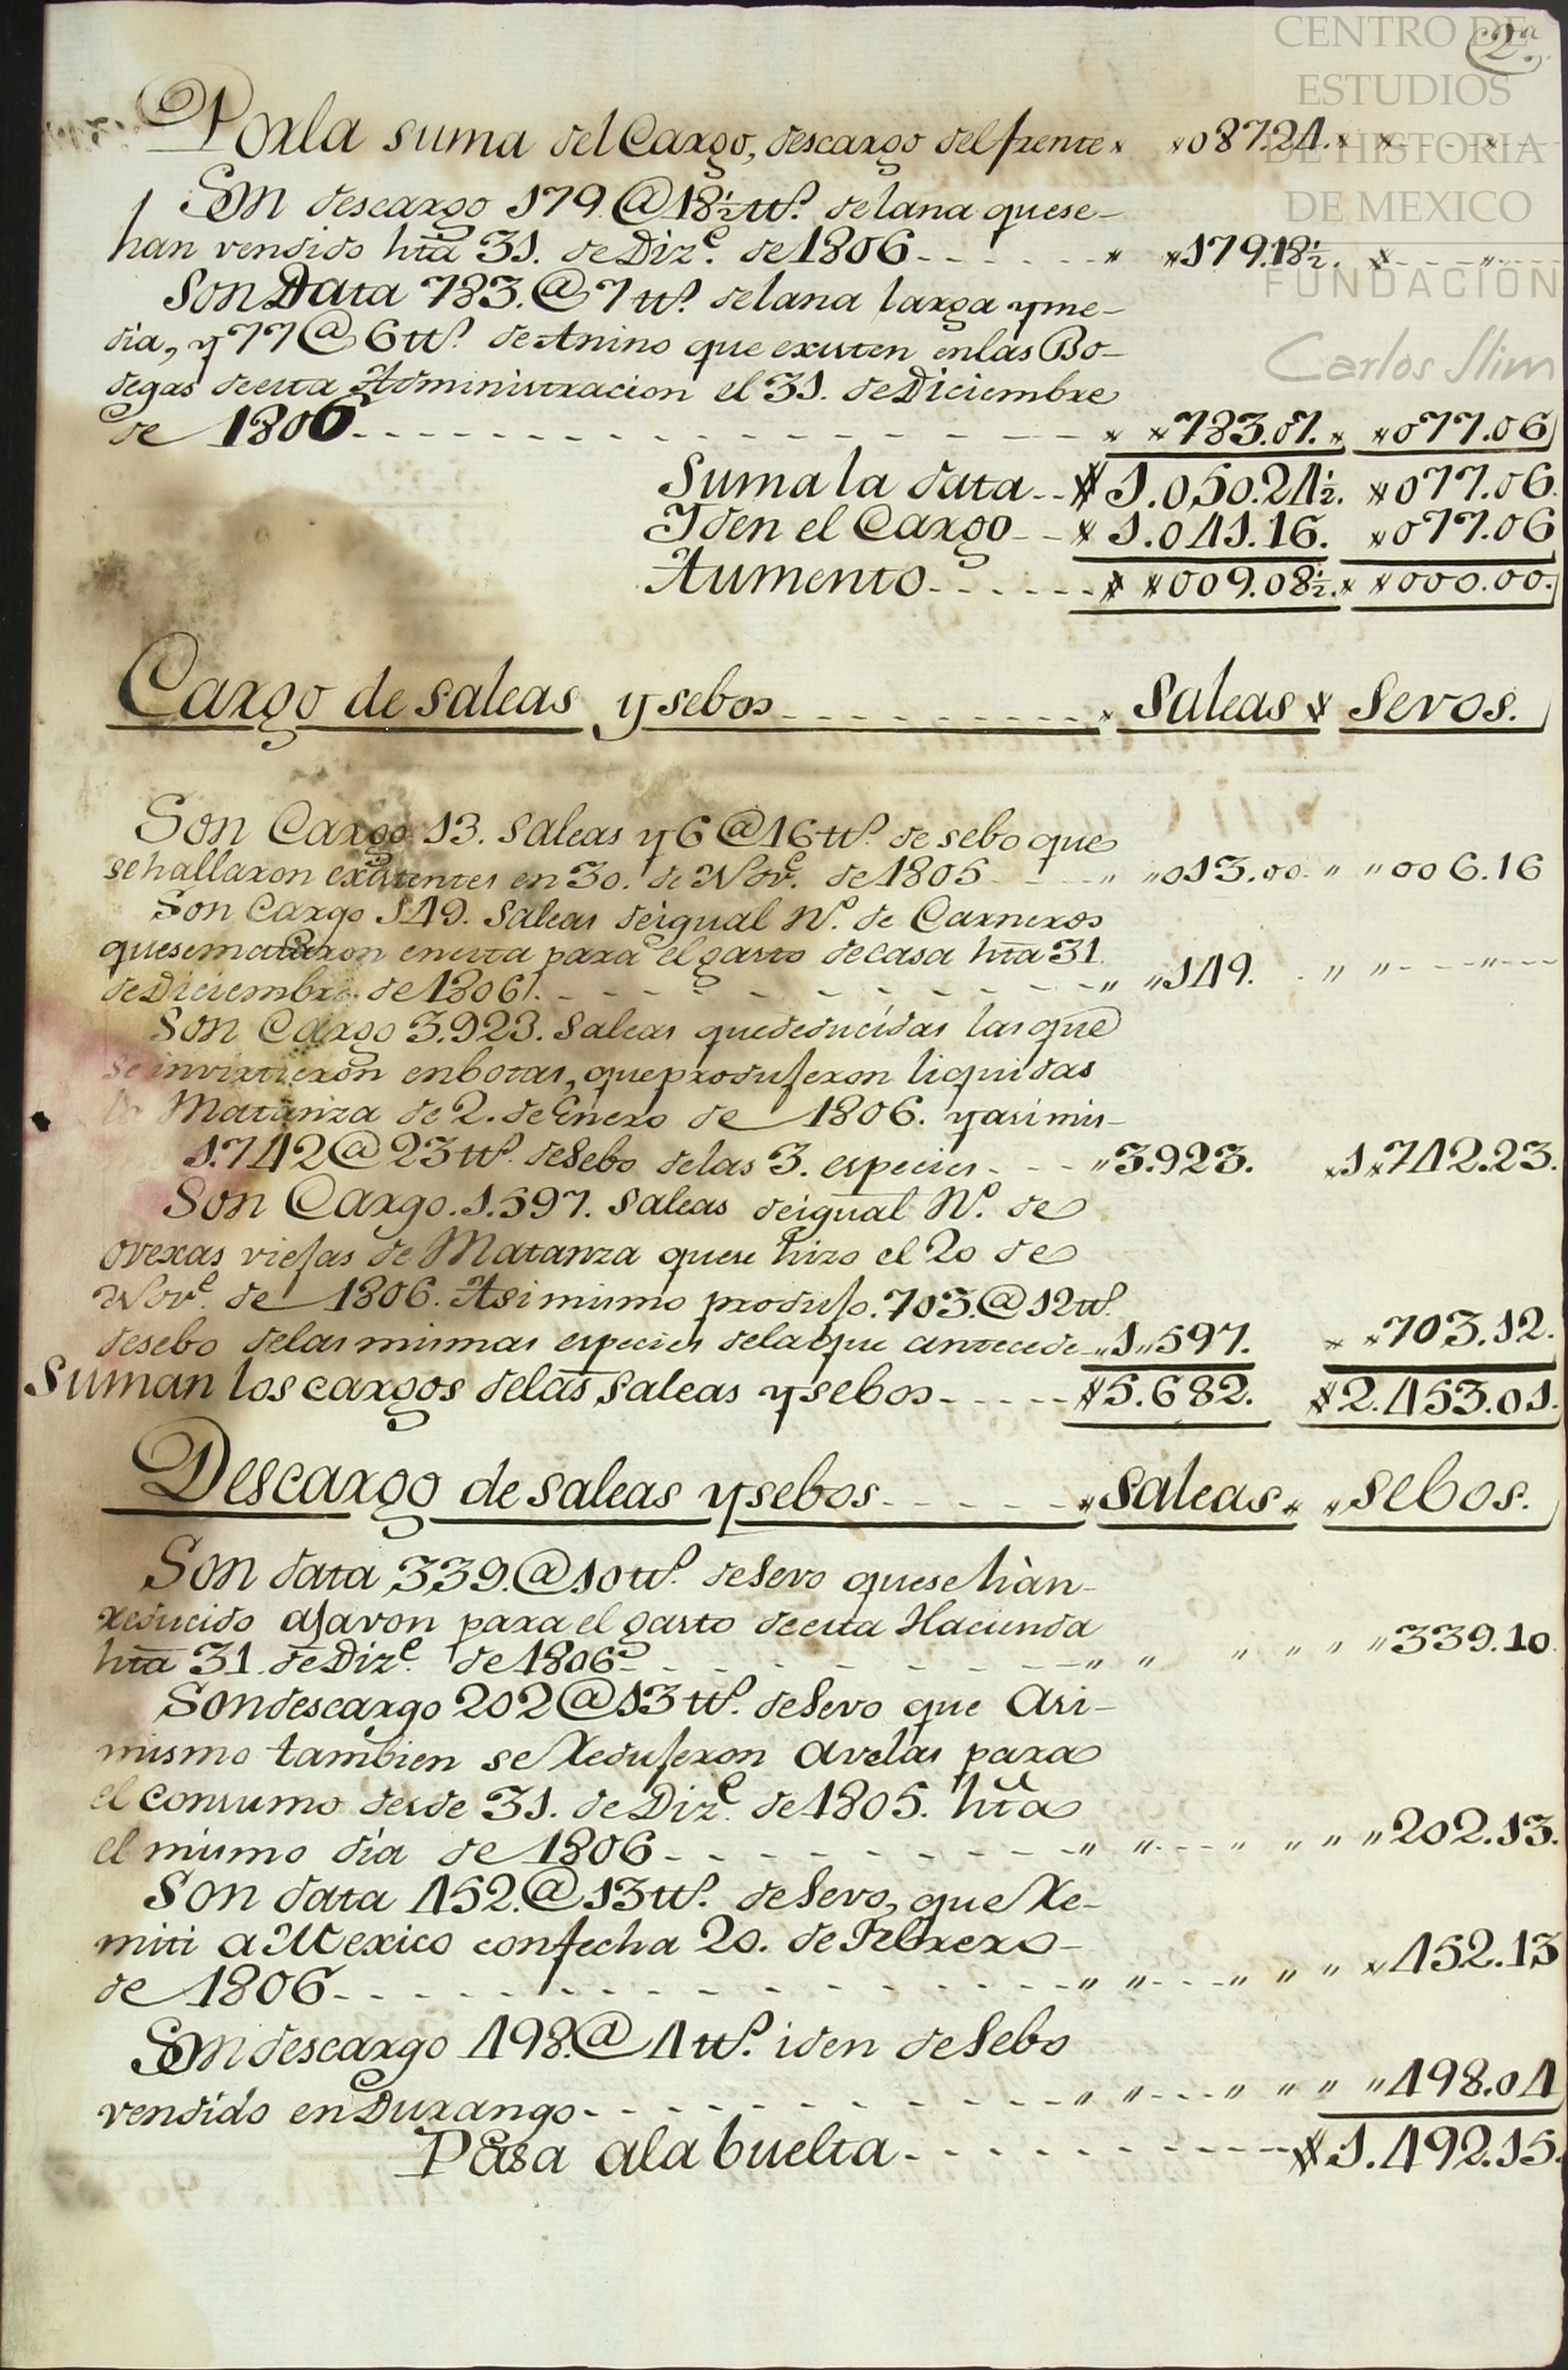 2ª
CENTRO DE
ESTUDIOS
DE HISTORIA
DE MEXICO
FUNDACIÓN
Carlos Slim
Porla suma del Cargo, descargo del frente 087.24.
Son descargo 179 @ 18½ tt.ˢ de lana que se-
han vendido htã 31. de Diz.ᵉ de 1806 - - - - - 179.18½.
Son Data 783. @ 7 tt.ˢ de lana larga y me-
dia, y 77 @ 6 tt.ˢ de Anino que existen en las Bo-
degas de esta Administracion el 31. de Diciembre
de 1806 - - - - - 783.07. 077.06
Suma la data - - 1.050.24½. 077.06.
Iden el Cargo - - 1.041.16. 077.06
Aumento - - - - - 009.08½. 000.00.
Cargo de saleas y sebos - - - - - Saleas Sevos.
Son Cargo 13. Saleas y 6 @ 16 tt.ˢ de sebo que
se hallaron existentes en 30. de Nov.ᵉ de 1805 - - - " " 013.00. " " 006.16
Son Cargo 149. Saleas de igual N.º de Carneros
que se mataron en esta para el gasto de casa htã 31.
de Diciembre de 1806. - - - - - " " 149. " " - - - " - - -
Son Cargo 3.923. Saleas que deducidas las que
se invirtieron en botas, que produjeron liquidas
la Matanza de 2. de Enero de 1806. y asimis-
1.742 @ 23 tt.ˢ de Sebo de las 3. especies - - - " 3.923. 1.742.23.
Son Cargo. 1.597. Saleas de igual N.º de
ovexas viejas de Matanza que se hizo el 20 de
Nov.ᵉ de 1806. Asimismo produjo. 703. @ 12 tt.ˢ
de sebo de las mismas especies de la que antecede - " 1 " 597. 703.12.
Suman los cargos de las saleas y sebos - - - - - 5.682. 2.453.01.
Descargo de saleas y sebos - - - - - Saleas Sebos.
Son data 339. @ 10 tt.ˢ de Sevo que se hàn-
reducido a Javon para el gasto de esta Hacienda
htã 31. de Diz.ᵉ de 1806 - - - - - " " " " " " 339.10.
Son descargo 202 @ 13 tt.ˢ de Sevo que Asi-
mismo tambien se Redujeron a velas para
el consumo desde 31. de Diz.ᵉ de 1805. htã
el mismo dia de 1806 - - - - - " " - - - " " " " 202.13.
Son data 452. @ 13 tt.ˢ de Sevo, que Re-
miti a Mexico con fecha 20. de Febrero -
de 1806 - - - - - " " - - - " " " 452.13
Son descargo 498. @ 4 tt.ˢ iden de Sebo
vendido en Durango - - - - - " " - - - " " " " 498.04
Pasa ala buelta - - - - - 1.492.15.